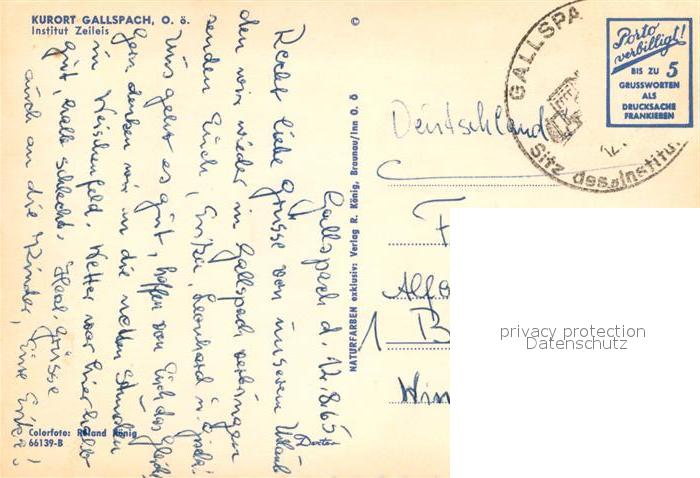 KURORT GALLSPACH, O. ö.
Institut Zeileis
©
Gallspach d. 12.8.65
Recht liebe Grüsse von unserem Urlaub
den wir wieder in Gallspach verbringen
senden Euch, Erika, Leonhard u.
Uns geht es gut, hoffen von Euch das Gleiche
Gern denken wir in die netten Stunden
in Weischenfeld. Wetter war hier halb
gut, halb schlecht. Herzl. Grüsse
auch an die Kinder, Eure Erika!
Colorfoto: Roland König
66139-B
NATURFARBEN exklusiv: Verlag R. König, Braunau/Inn O. ö
GALLSPA
Sitz des Institu
12.
Porto
verbilligt!
BIS ZU 5
GRUSSWORTEN
ALS
DRUCKSACHE
FRANKIEREN
Deutschland
F
Alfo
1 B
Win
privacy protection
Datenschutz